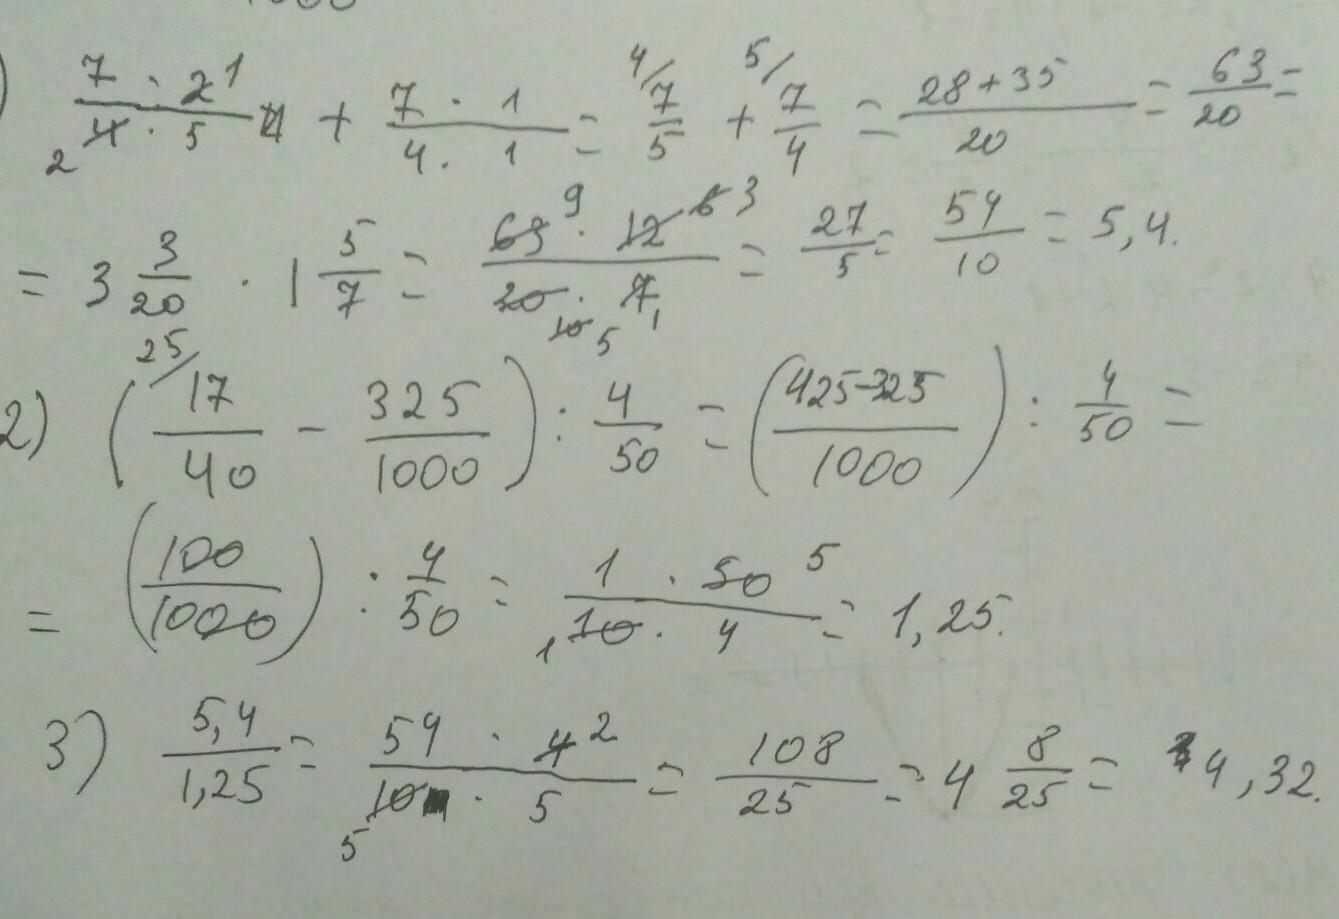 1000
) 7 · 2 1 / 2 4 · 5 + 7 · 1 / 4 · 1 = 4/ 7/5 + 5/ 7/4 = 28+35 / 20 = 63/20 =
= 3 3/20 · 1 5/7 = 63 9 · 12 6 3 / 20 10 5 · 7 1 = 27/5 = 54/10 = 5,4.
2) ( 25/ 17/40 - 325/1000 ) : 4/50 = ( 425-325 / 1000 ) : 4/50 =
= ( 100/1000 ) : 4/50 = 1 · 50 5 / 1 10 · 4 = 1,25.
3) 5,4 / 1,25 = 54 · 4 2 / 5 10 · 5 = 108/25 = 4 8/25 = 4,32.